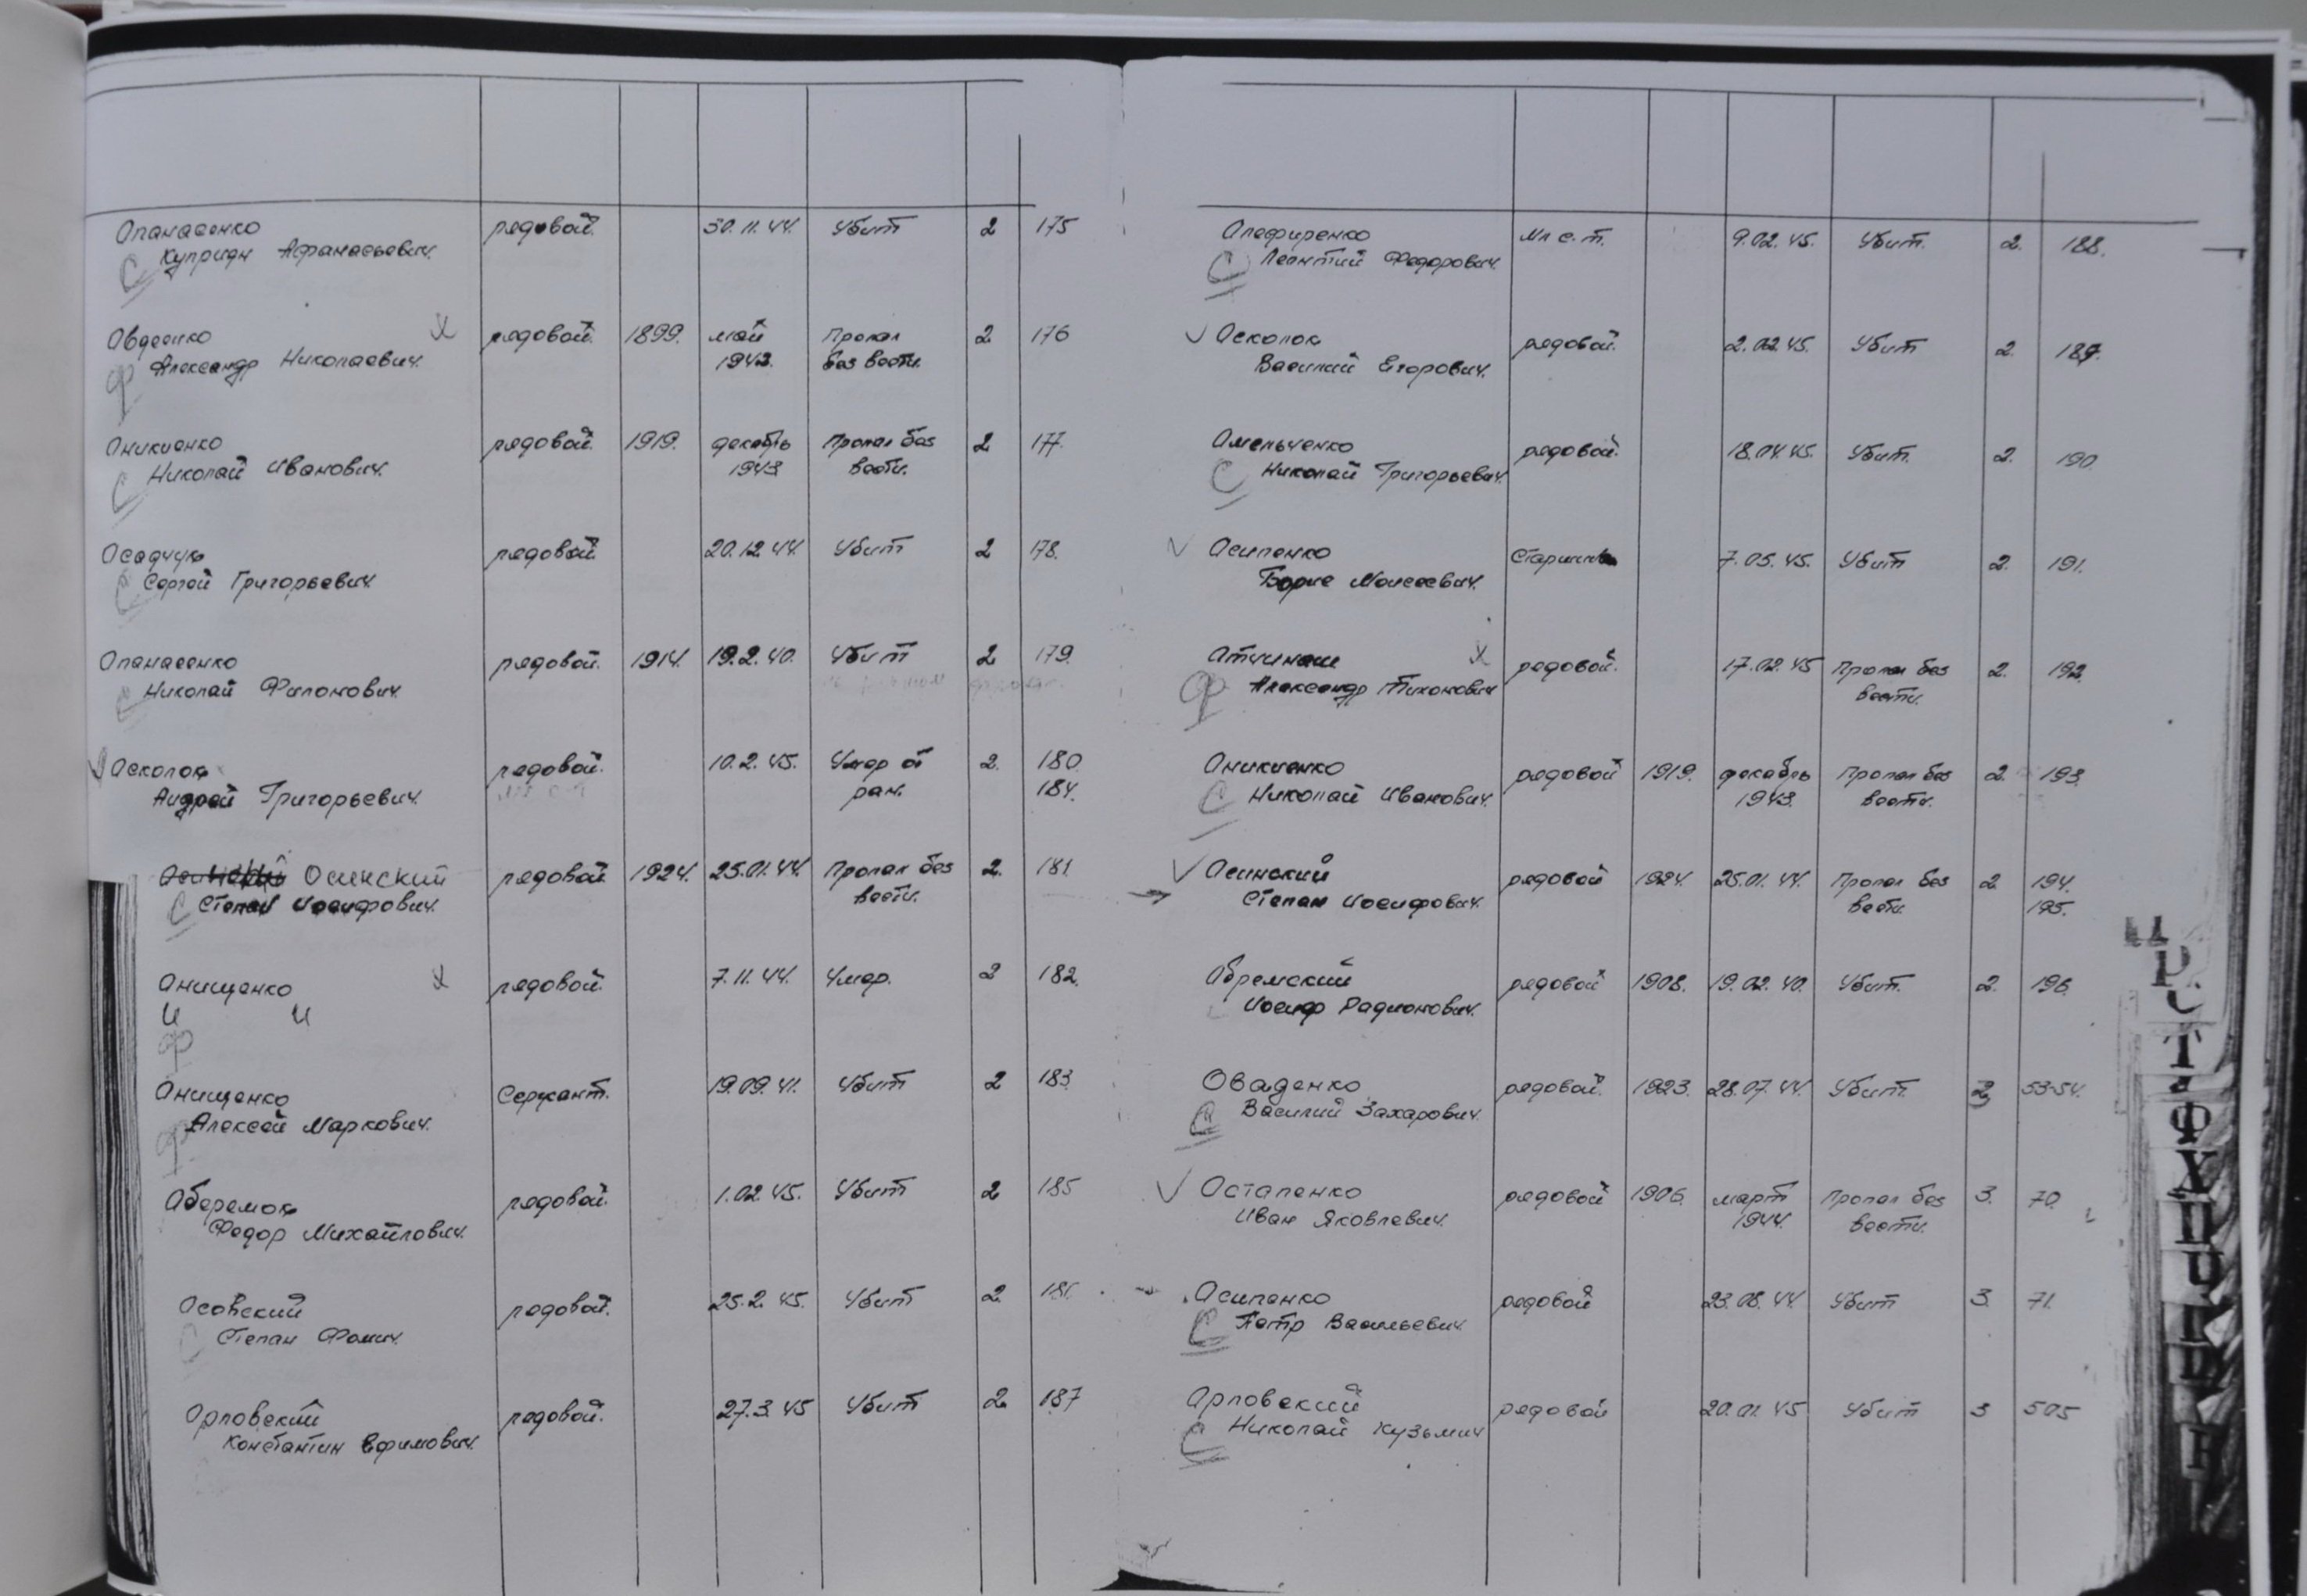 Опанасенко рядовой. 30.11.44. Убит 2 175
С Куприян Афанасьевич.
Овдеенко х рядовой. 1899. май Пропал 2 176
Ф Александр Николаевич. 1943. без вести.
Оникиенко рядовой. 1919. декабрь Пропал без 2 177.
С Николай Иванович. 1943 вести.
Осадчук рядовой 20.12.44. Убит 2 178.
С Сергей Григорьевич.
Опанасенко рядовой. 1914. 19.2.40. Убит 2 179.
С Николай Филонович.
Осколок рядовой. 10.2.45. Умер от 2. 180
Андрей Григорьевич. ран. 184.
Осинский рядовой 1924. 25.01.44. Пропал без 2. 181.
С Степан Иосифович. вести.
Онищенко х рядовой. 7.11.44. Умер. 2 182.
И И
Ф
Онищенко Сержант. 19.09.41. Убит 2 183.
Ф Алексей Маркович.
Оберемок рядовой. 1.02.45. Убит 2 185
Федор Михайлович.
Осовский рядовой. 25.2.45. Убит 2.
С Степан Фомич.
Орловский рядовой. 27.3.45 Убит 2. 187
Константин Ефимович.
Олефиренко Мл с.т. 9.02.45. Убит. 2. 188.
С Леонтий Федорович.
Осколок рядовой. 2.02.45. Убит 2. 189.
Василий Егорович.
Омельченко рядовой. 18.04.45. Убит. 2. 190
С Николай Григорьевич.
Осипенко Старшина 7.05.45. Убит 2. 191.
Борис Моисеевич.
Отчинаш х рядовой. 17.02.45 Пропал без 2. 192.
Ф Александр Тихонович вести.
Оникиенко рядовой 1919. декабрь Пропал без 2. 193.
С Николай Иванович. 1943. вести.
Осинский рядовой 1924. 25.01.44. Пропал без 2 194.
Степан Иосифович. вести 195.
Обремский рядовой 1908. 19.02.40. Убит. 2. 196.
Иосиф Радионович.
Оваденко рядовой. 1923. 28.07.44. Убит. 2 53-54.
С Василий Захарович.
Остапенко рядовой 1906. март Пропал без 3. 70.
Иван Яковлевич. 1944. вести.
Осипенко рядовой 23.08.44. Убит 3. 71.
С Петр Васильевич.
Орловский рядовой 20.01.45 Убит 3 505
С Николай Кузьмич
Р
С
Т
Ф
Х